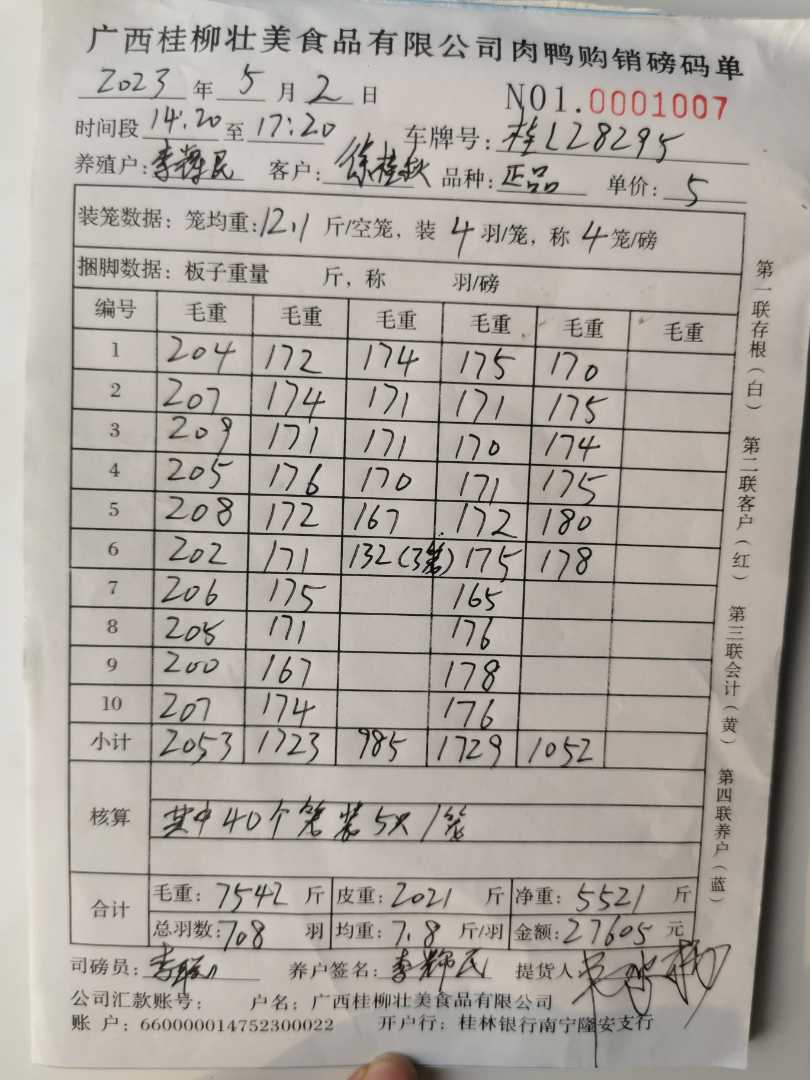 广西桂柳壮美食品有限公司肉鸭购销磅码单
2023 年 5 月 2 日 NO1.0001007
时间段 14:20 至 17:20 车牌号: 桂L28295
养殖户: 李辉民 客户: 徐桂秋 品种: 正品 单价: 5
装笼数据: 笼均重: 12.1 斤/空笼, 装 4 羽/笼, 称 4 笼/磅
捆脚数据: 板子重量 斤, 称 羽/磅
编号 毛重 毛重 毛重 毛重 毛重 毛重
1 204 172 174 175 170
2 207 174 171 171 175
3 209 171 171 170 174
4 205 176 170 171 175
5 208 172 167 172 180
6 202 171 132(3笼) 175 178
7 206 175 165
8 205 171 176
9 200 167 178
10 207 174 176
小计 2053 1723 985 1729 1052
核算
其中40个笼装5只/笼
合计 毛重: 7542 斤 皮重: 2021 斤 净重: 5521 斤
总羽数: 708 羽 均重: 7.8 斤/羽 金额: 27605 元
司磅员: 养户签名: 李辉民 提货人
公司汇款账号: 户名: 广西桂柳壮美食品有限公司
账 户: 660000014752300022 开户行: 桂林银行南宁隆安支行
第一联存根(白) 第二联客户(红) 第三联会计(黄) 第四联养户(蓝)